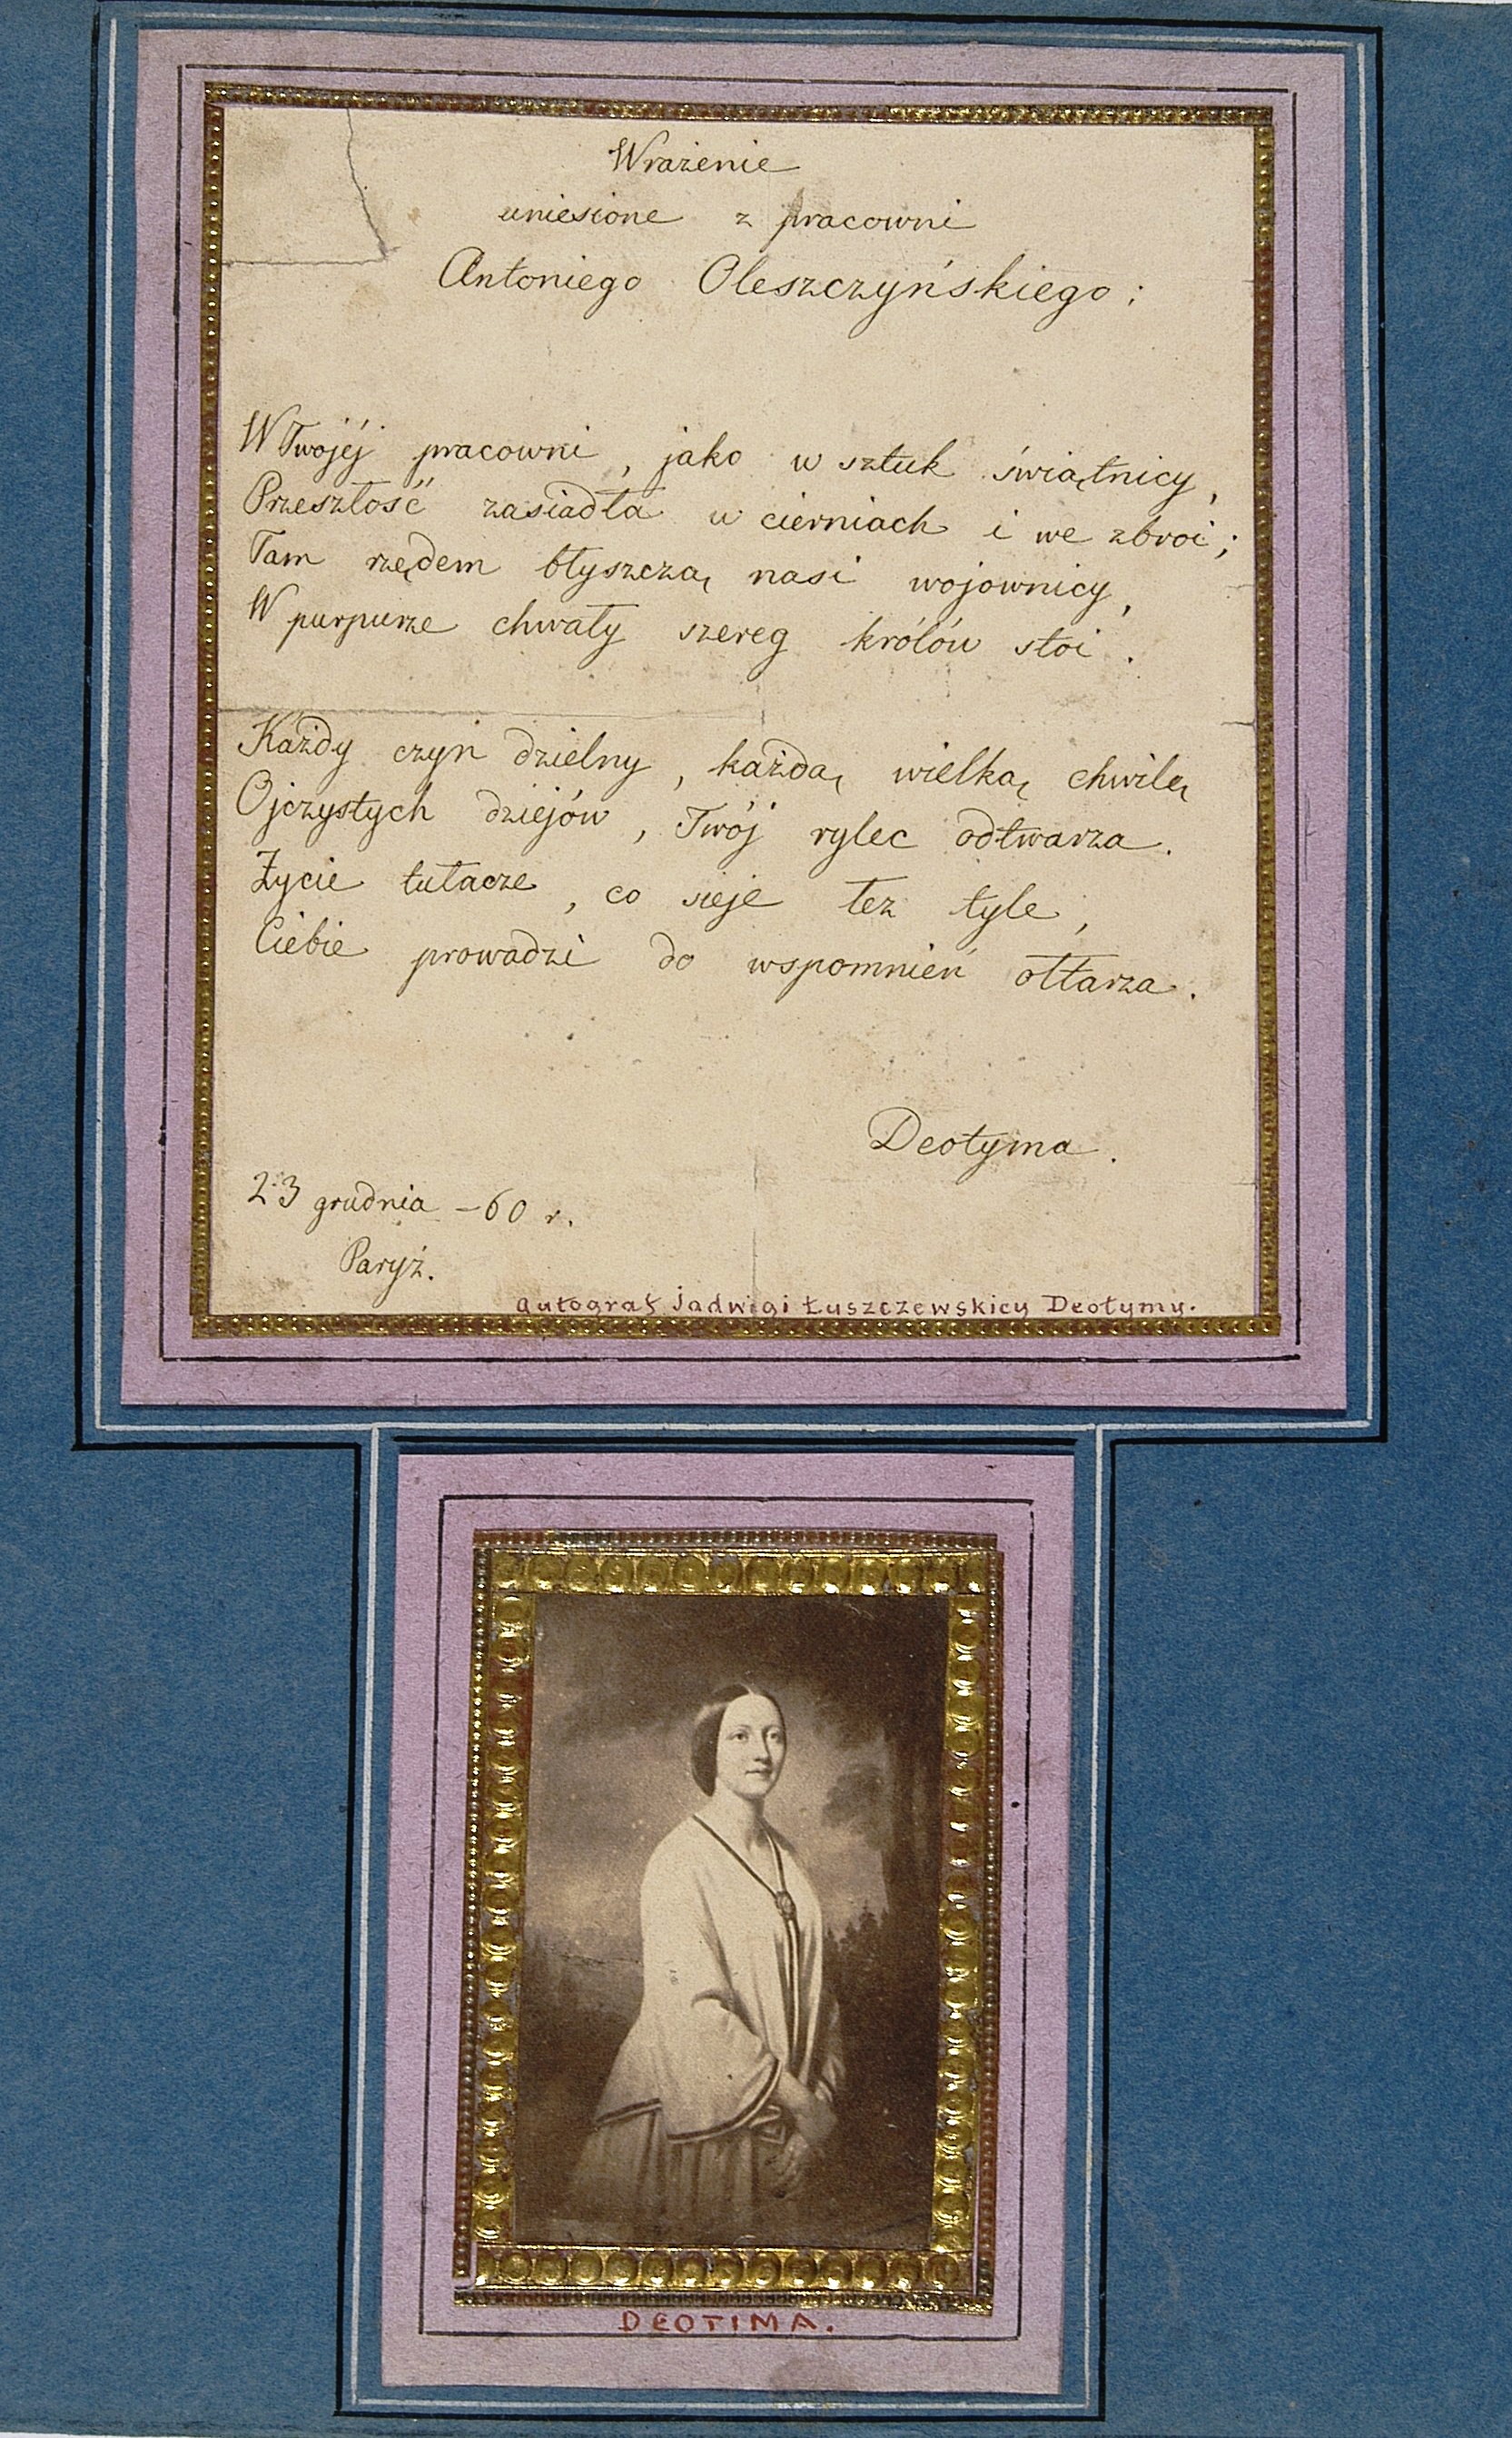 Wrażenie
uniesione z pracowni
Antoniego Oleszczyńskiego:
W Twojéj pracowni, jako w sztuk świątnicy,
Przeszłość zasiadła w cierniach i we zbroi;
Tam rzędem błyszczą nasi wojownicy,
W purpurze chwały szereg królów stoi.
Każdy czyn dzielny, każdą wielką chwilę
Ojczystych dziejów, Twój rylec odtwarza.
Życie tułacze, co sieje łez tyle,
Ciebie prowadzi do wspomnień ołtarza.
Deotyma.
23 grudnia -60 r.
Paryż.
autograf Jadwigi Łuszczewskiey Deotymy.
DEOTIMA.